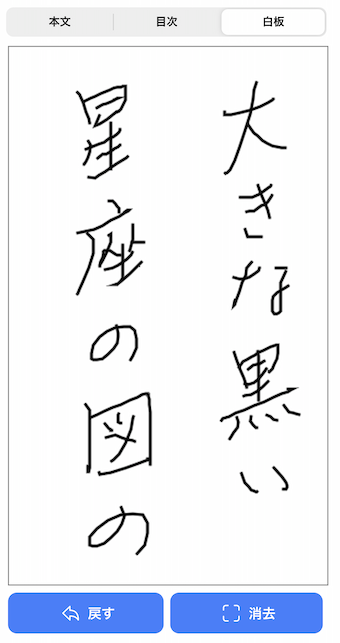 本文
目次
白板
大きな黒い
星座の図の
戻す
消去